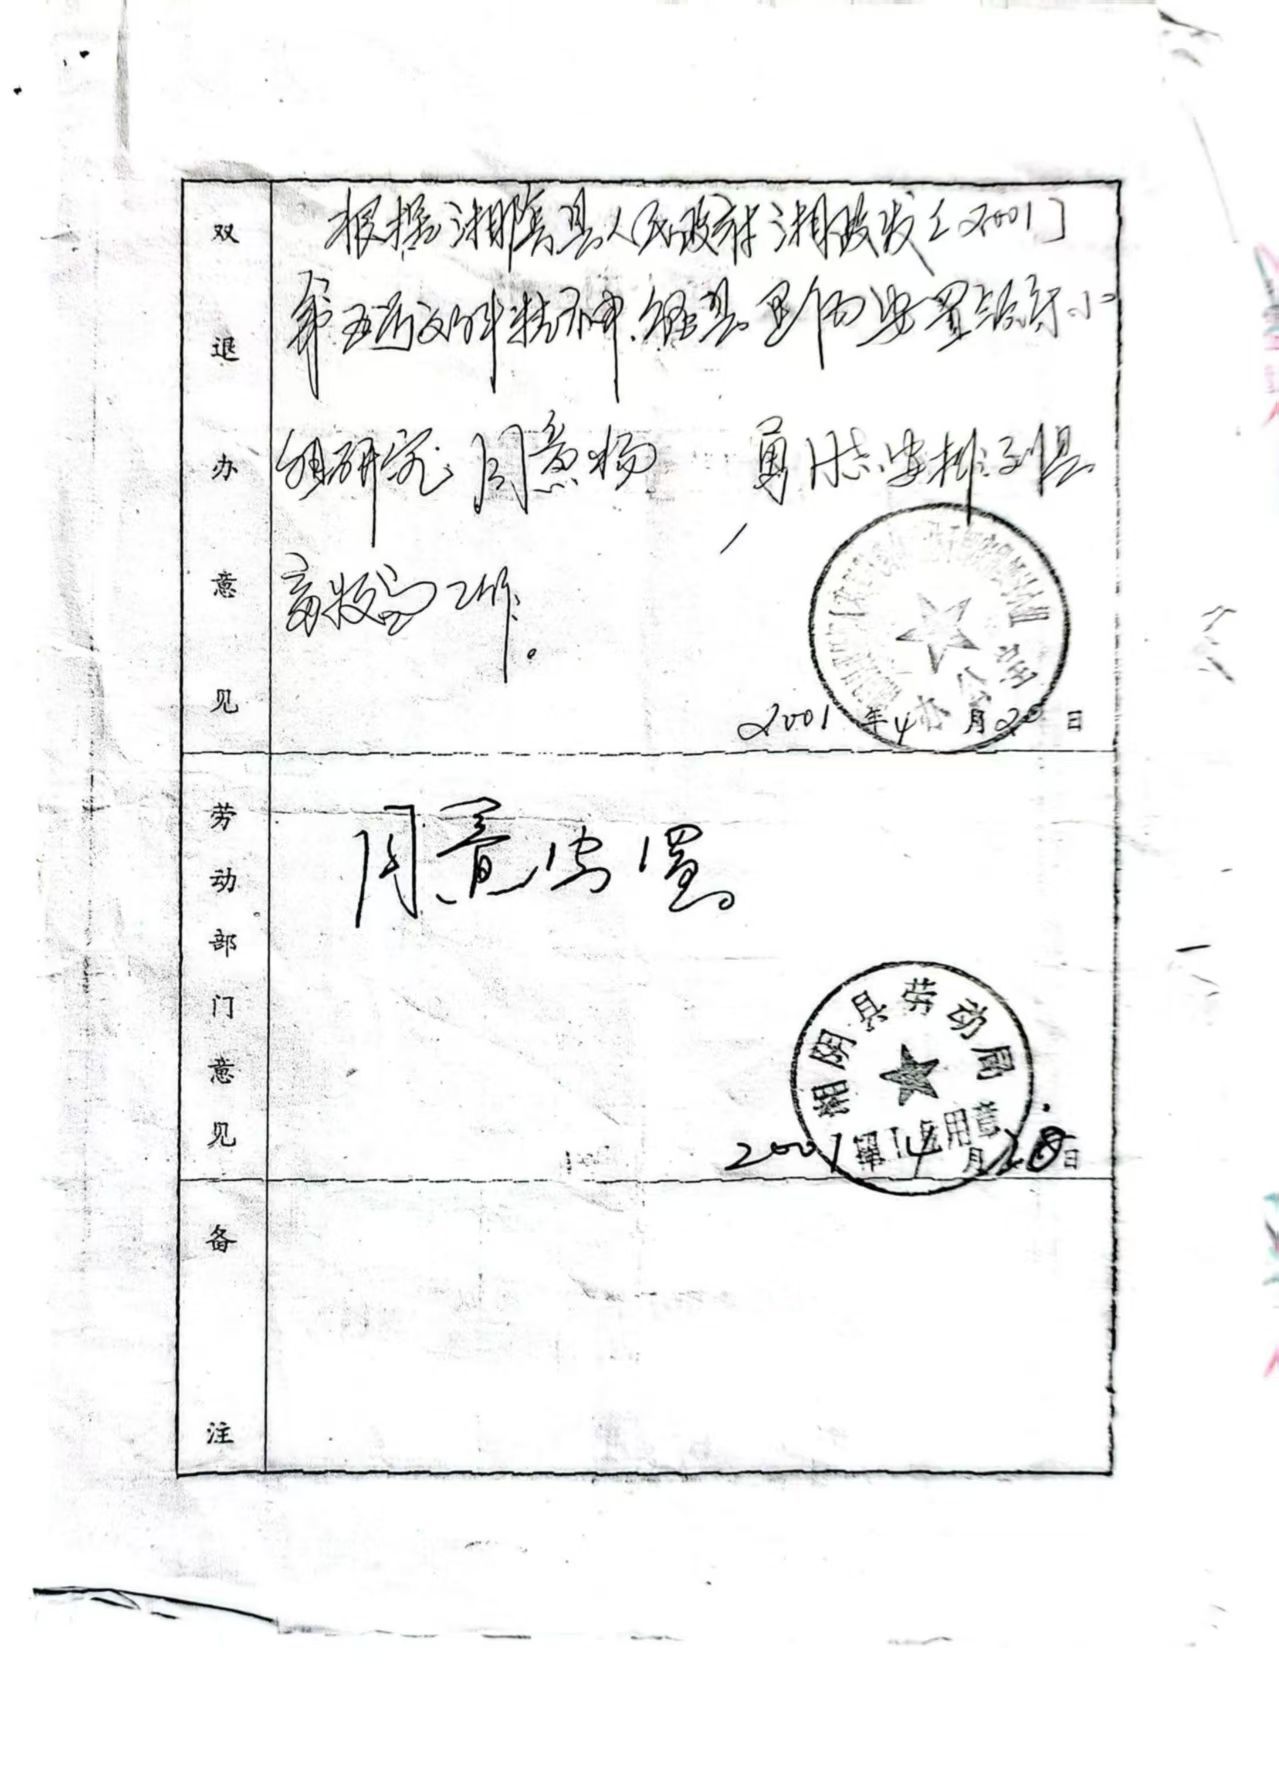 双退办意见
根据湘阴县人民政府湘政发[2001]
第五号文件精神,经县里伤安置领导小
组研究,同意杨 勇同志安排到县
畜牧局工作。
办公室
2001年4月20日
劳动部门意见
同意安置。
湘阴县劳动局
用章
2001年4月28日
备注